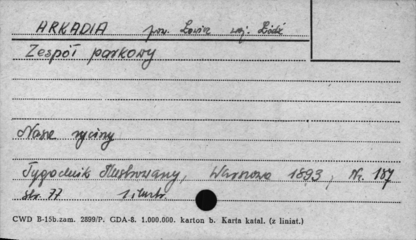 ARKADIA pow. Łowicz woj. Łódź
Zespół parkowy
Nasze ryciny
Tygodnik Illustrowany, Warszawa 1893, Nr. 187
str. 77 1 ilustr.
CWD B-15b.zam. 2899/P. GDA-8. 1.000.000. karton b. Karta katal. (z liniat.)